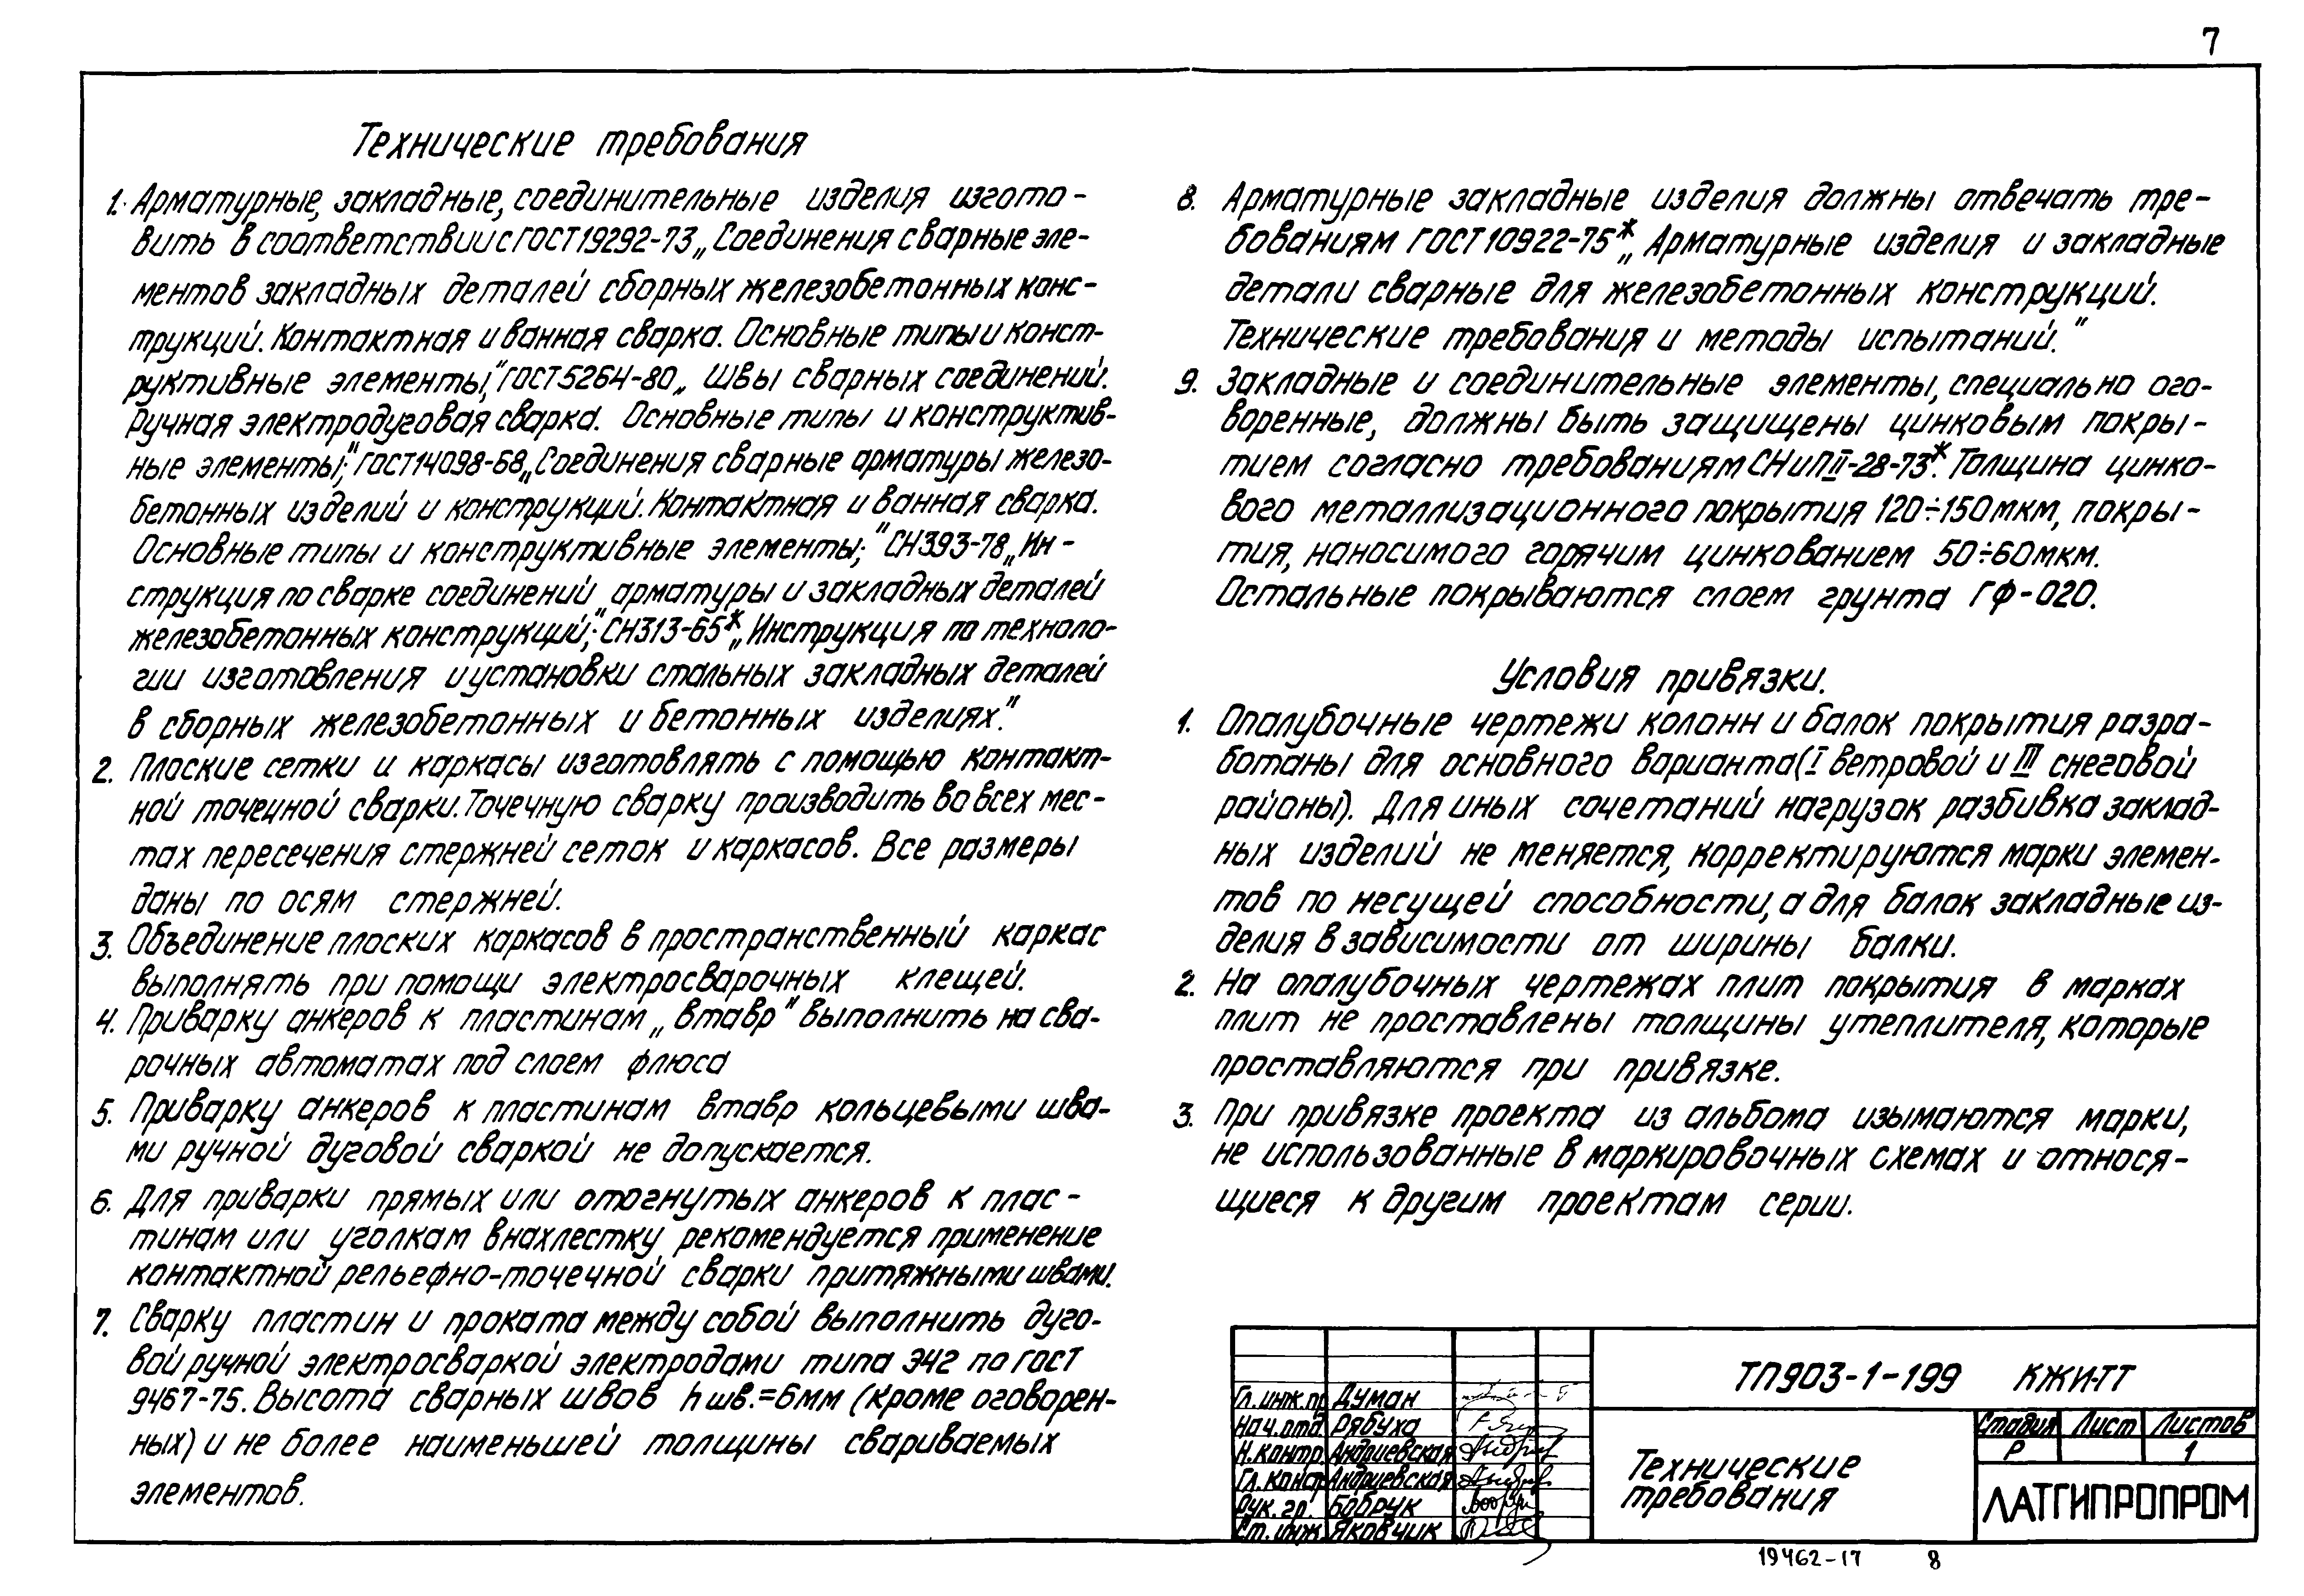 7
Технические требования
1. Арматурные, закладные, соединительные изделия изгото-
вить в соответствии с ГОСТ 19292-73 „Соединения сварные эле-
ментов закладных деталей сборных железобетонных конс-
трукций. Контактная и ванная сварка. Основные типы и конст-
руктивные элементы;" ГОСТ 5264-80 „ Швы сварных соединений.
Ручная электродуговая сварка. Основные типы и конструктив-
ные элементы;" ГОСТ 14098-68 „Соединения сварные арматуры железо-
бетонных изделий и конструкций. Контактная и ванная сварка.
Основные типы и конструктивные элементы;" СН 393-78 „Ин-
струкция по сварке соединений арматуры и закладных деталей
железобетонных конструкций;" СН 313-65* „Инструкция по техноло-
гии изготовления и установки стальных закладных деталей
в сборных железобетонных и бетонных изделиях."
2. Плоские сетки и каркасы изготовлять с помощью контакт-
ной точечной сварки. Точечную сварку производить во всех мес-
тах пересечения стержней сеток и каркасов. Все размеры
даны по осям стержней.
3. Объединение плоских каркасов в пространственный каркас
выполнять при помощи электросварочных клещей.
4. Приварку анкеров к пластинам „втавр" выполнить на сва-
рочных автоматах под слоем флюса
5. Приварку анкеров к пластинам втавр кольцевыми шва-
ми ручной дуговой сваркой не допускается.
6. Для приварки прямых или отогнутых анкеров к плас-
тинам или уголкам внахлестку рекомендуется применение
контактной рельефно-точечной сварки притяжными швами.
7. Сварку пластин и проката между собой выполнить дуго-
вой ручной электросваркой электродами типа Э42 по ГОСТ
9467-75. Высота сварных швов hшв.=6мм (кроме оговорен-
ных) и не более наименьшей толщины свариваемых
элементов.
8. Арматурные закладные изделия должны отвечать тре-
бованиям ГОСТ 10922-75* „ Арматурные изделия и закладные
детали сварные для железобетонных конструкций.
Технические требования и методы испытаний."
9. Закладные и соединительные элементы, специально ого-
воренные, должны быть защищены цинковым покры-
тием согласно требованиям СНиП II-28-73*. Толщина цинко-
вого металлизационного покрытия 120÷150мкм, покры-
тия, наносимого горячим цинкованием 50÷60мкм.
Остальные покрываются слоем грунта ГФ-020.
Условия привязки.
1. Опалубочные чертежи колонн и балок покрытия разра-
ботаны для основного варианта (I ветровой и III снеговой
районы). Для иных сочетаний нагрузок разбивка заклад-
ных изделий не меняется, корректируются марки элемен-
тов по несущей способности, а для балок закладные из-
делия в зависимости от ширины балки.
2. На опалубочных чертежах плит покрытия в марках
плит не проставлены толщины утеплителя, которые
проставляются при привязке.
3. При привязке проекта из альбома изымаются марки,
не использованные в маркировочных схемах и относя-
щиеся к другим проектам серии.
ТП903-1-199 КЖИ-ТТ
Гл. инж. пр Думан
Нач. отд Рябуха
Н. контр Андриевская
Гл. конст Андриевская
Рук. гр. Бобрук
Ст. инж. Яковчик
Технические
требования
Стадия Лист Листов
Р 1
ЛАТГИПРОПРОМ
19462-17 8